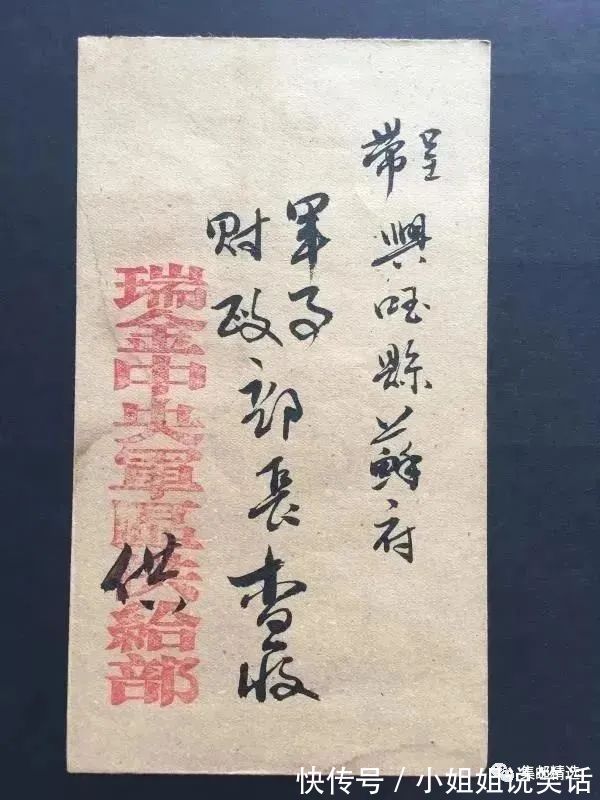 帶呈興國縣蘇府
軍事
財政
部長查收
瑞金中央軍區供給部
供
集邮精选
快传号 / 小姐姐说笑话